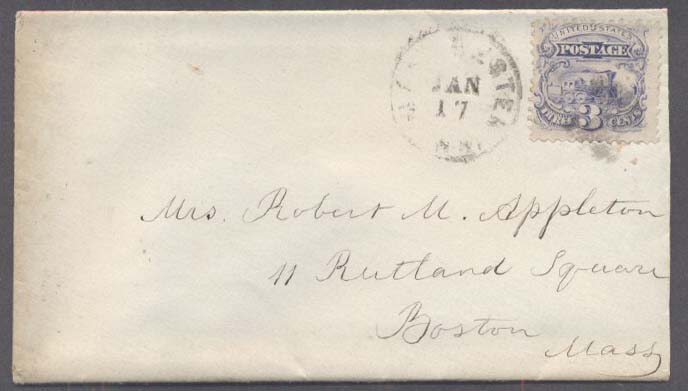 UNITED STATES
POSTAGE
THREE 3 CENTS
JAN
17
N.H.
Mrs. Robert M. Appleton
11 Rutland Square
Boston
Mass